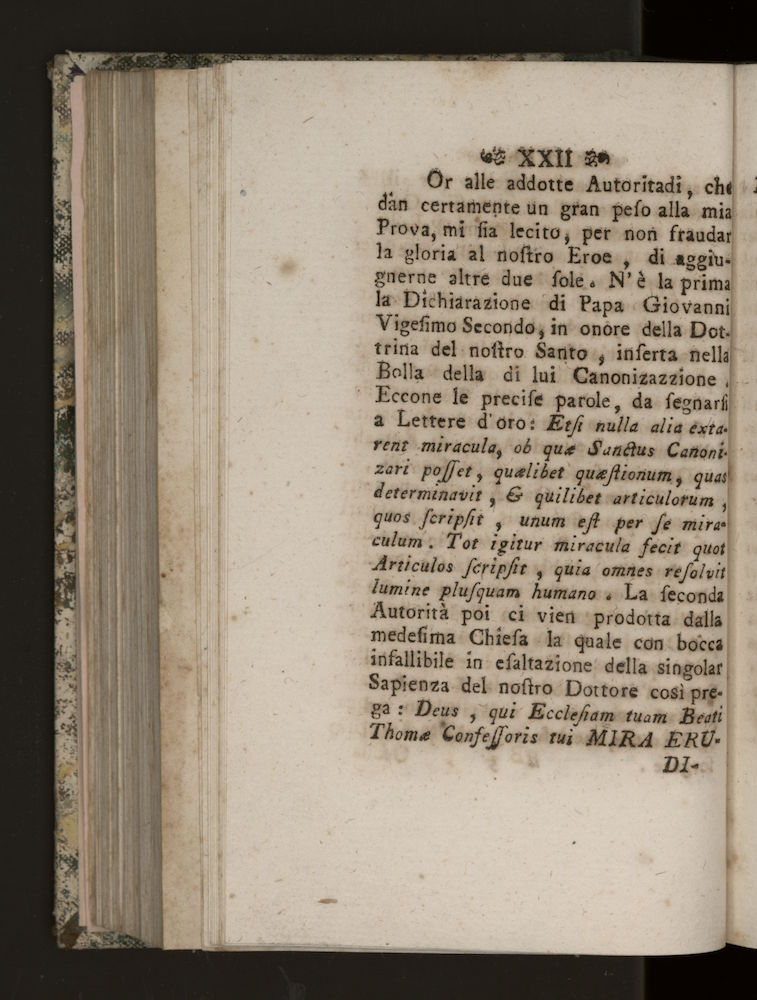 XXII
Or alle addotte Autoritadi, che
dan certamente un gran peſo alla mia
Prova, mi ſia lecito, per non fraudar
la gloria al noſtro Eroe, di aggiu-
gnerne altre due ſole. N'è la prima
la Dichiarazione di Papa Giovanni
Vigeſimo Secondo, in onore della Dot-
trina del noſtro Santo, inſerta nella
Bolla della di lui Canonizazzione.
Eccone le preciſe parole, da ſegnarſi
a Lettere d'oro: Etſi nulla alia exta-
rent miracula, ob quæ Sanctus Canoni-
zari poſſet, quælibet quæſtionum, quas
determinavit, & quilibet articulorum,
quos ſcripſit, unum eſt per ſe mira-
culum. Tot igitur miracula fecit quot
Articulos ſcripſit, quia omnes reſolvit
lumine pluſquam humano. La ſeconda
Autorità poi ci vien prodotta dalla
medeſima Chieſa la quale con bocca
infallibile in eſaltazione della singolar
Sapienza del noſtro Dottore così pre-
ga: Deus, qui Eccleſiam tuam Beati
Thomæ Confeſſoris tui MIRA ERU-
DI-